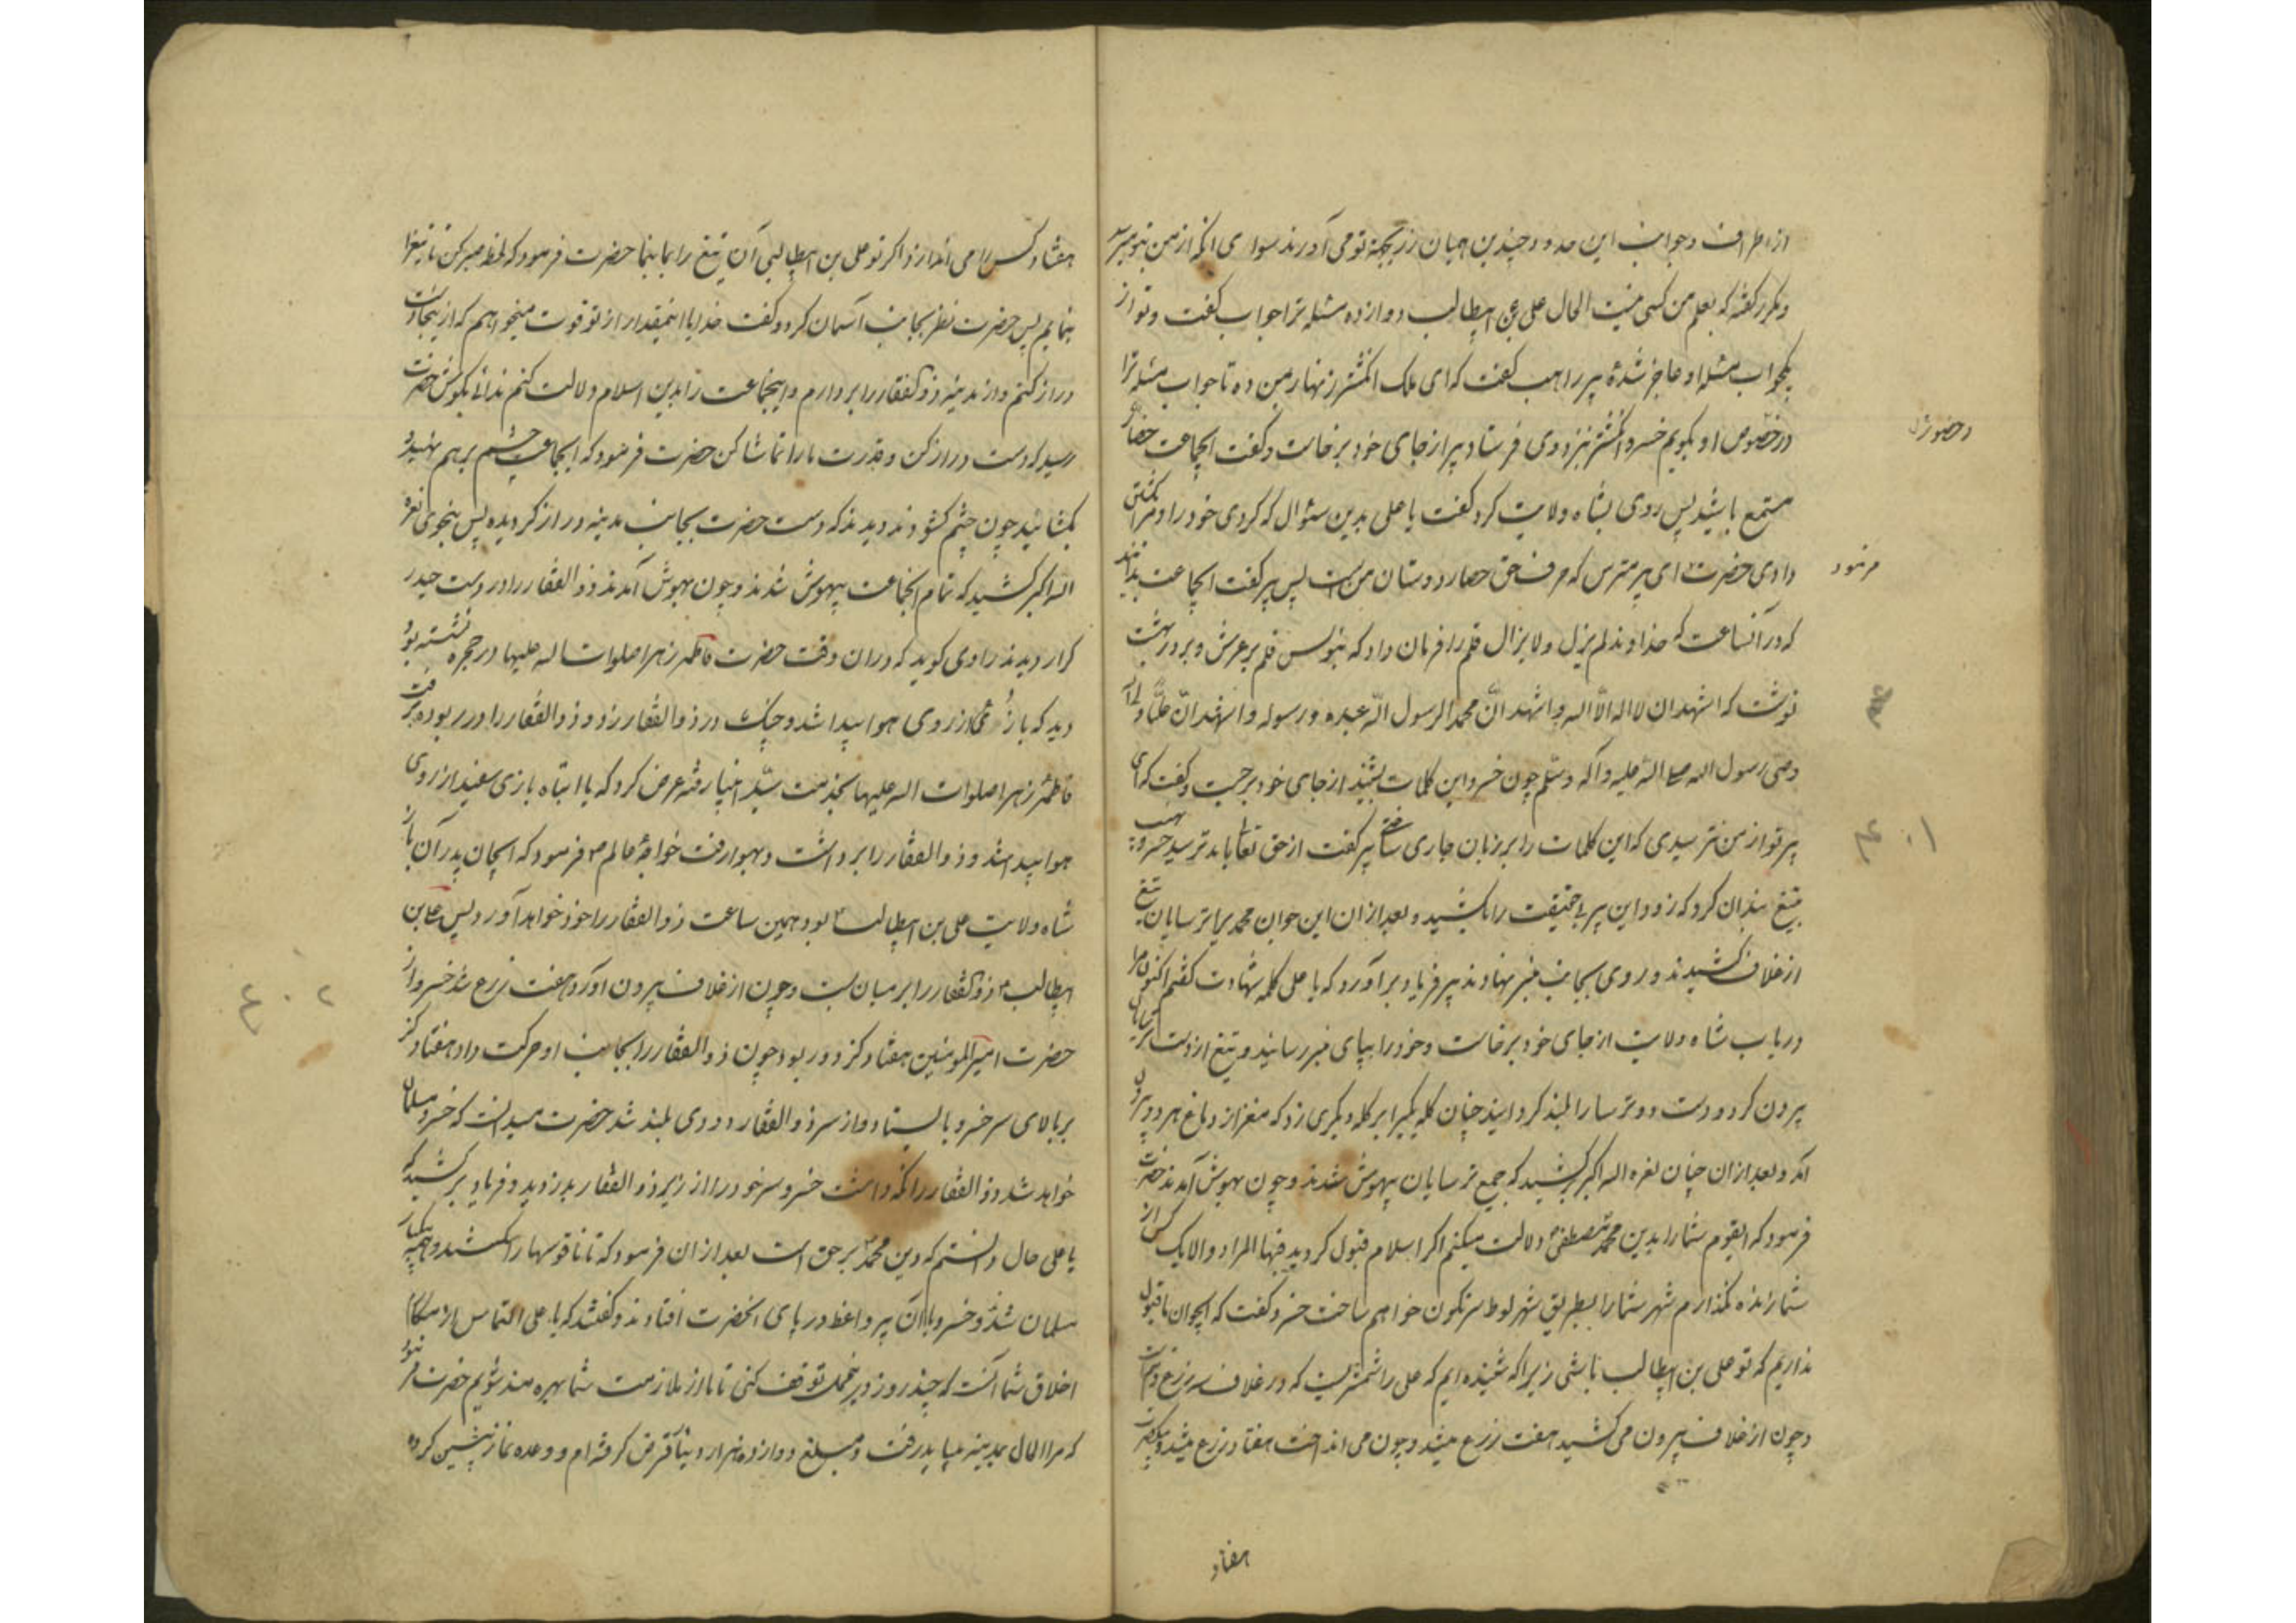 از اطراف و جوانب این حدود چندین همیان زر بجهة تو می آورند سوای آنکه از من بتو میرسد
و مکرر گفته که بعلم من کسی نیست الحال علی بن ابیطالب دوازده مسئله ترا جواب گفت و تو از
یکجواب مسئله او عاجز شدهٔ پیر راهب گفت که ای ملک انگشتر زنهار بمن ده تا جواب مسئله ترا
در خصوص او بگویم خسرو انگشتر بنزد وی فرستاد پیر از جای خود برخاست و گفت ایجماعت حضار
و حضور
مستمع باشید پس روی بشاه ولایت کرد گفت یا علی بدین سئوال که کردی خود را و مرا بکشتن
دادی حضرت ای پیر مترس که حرف حق حصار دوستان من است پس پیر گفت ایجماعت بدانید
فرمود
که در آنساعت که خداوند لم یزل و لا یزال قلم را فرمان داد که بنویس قلم بر عرش و بر در بهشت
نوشت که اشهد ان لا اله الا اله و اشهد انّ محمد الرسول الله عبده و رسوله و اشهد انّ علیّاً ولی الله
وصی رسول الله صلی الله علیه و آله و سلم چون خسرو این کلمات بشنید از جای خود برجست و گفت که ای
پیر تو از من نترسیدی که این کلمات را بر زبان جاری ساختی پیر گفت از حق تعالی باید ترسید خسرو نهیب
۴۰۱
بتیغ بندان کرد که زود این پیر بی حقیقت را بکشید و بعد از ان این جوان محمدیرا ترسایان تیغ
از غلاف کشیدند و روی بجانب منبر نهادند پیر فریاد برآورد که یا علی کلمه شهادت گفتم اکنون مرا
دریاب شاه ولایت از جای خود برخاست و خود را بپای منبر رسانید و تیغ از دست ترسایان
بیرون کرد و دست دو ترسا را بلند گردانید چنان کله یکیرا بر کله دیگری زد که مغز از دماغ هر دو بیرون
آمد و بعد از ان چنان نعره اله اکبر کشید که جمیع ترسایان بیهوش شدند و چون بهوش آمدند حضرت
فرمود که ایقوم شما را بدین محمد مصطفی دلالت میکنم اگر اسلام قبول کردید فبها المراد و الا یک کس از
شما زنده نگذارم شهر شما را بطریق شهر لوط سرنگون خواهم ساخت خسرو گفت که ایجوان ما قبول
نداریم که تو علی بن ابیطالب باشی زیرا که شنیده ایم که علی را شمشریست که در غلاف سه زرع
و چون از غلاف بیرون می کشید هفت زرع میشد و چون می انداخت هفتاد زرع میشد
هفتاد
هفتاد کس را می اندازد اگر تو علی بن ابیطالبی آن تیغ را بما بنما حضرت فرمود که لحظه صبر کن تا تیغرا
بنمایم پس حضرت نظر بجانب آسمان کرد و گفت خدایا اینمقدار از تو قوت میخواهم که از اینجا دست
دراز کنم و از مدینه ذو الفقار را بردارم و اینجماعت را بدین اسلام دلالت کنم ندائی بگوش حضرت
رسید که دست دراز کن و قدرت ما را تماشا کن حضرت فرمود که ایجماعت چشم بر هم نهید و
بگشائید چون چشم گشودند دیدند که دست حضرت بجانب مدینه دراز گردیده پس بنحوی نعره
اله اکبر کشید که تمام انجماعت بیهوش شدند و چون بهوش آمدند ذو الفقار را در دست حیدر
کرار دیدند راوی گوید که در ان وقت حضرت فاطمه زهرا صلوات اله علیها در حجره نشسته بود
دید که باز از روی هوا پیدا شد و چنگ در ذو الفقار زد و ذو الفقار را در ربوده برفت
فاطمه زهرا صلوات اله علیها بخدمت سیّد انبیا رفته عرض کرد که یا ابتاه بازی سفید از روی
هوا پیدا شد و ذو الفقار را برداشت و بهوا رفت خواجهٔ عالم ص فرمود که ایجان پدر آن باز
شاه ولایت علی بن ابیطالب بود همین ساعت ذو الفقار را خود خواهد آورد پس علی بن
ابیطالب ذو الفقار را بر میان بست و چون از غلاف بیرون آورد هفت زرع شد خسرو از
۴۰۲
حضرت امیر المومنین هفتاد گز دور بود چون ذو الفقار را بجانب او حرکت داد هفتاد گز
بر بالای سر خسرو بایستاد و از سر ذو الفقار دودی بلند شد حضرت میدانست که خسرو مسلمان
خواهد شد ذو الفقار را نگهداشت خسرو سر خود را از زیر ذو الفقار بدزدید و فریاد بر کشید که
یا علی حال دانستم که دین محمد برحق است بعد از ان فرمود که تا ناقوسها را شکستند و همه بیکبار
مسلمان شدند و خسرو با آن پیر واعظ در پای انحضرت افتادند و گفتند که یا علی التماس از مکارم
اخلاق شما آنست که چند روز در توقف کنی تا ما از ملازمت شما بهره مند شویم حضرت فرمود
که مرا الحال بمدینه میباید رفت و مبلغ دوازده هزار دینار قرض گرفته ام و وعده نماز پیشین کرده